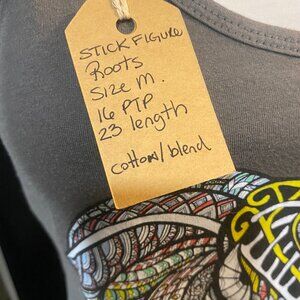 STICK FIGURE
Roots
Size M.
16 PTP
23 length
cotton/blend